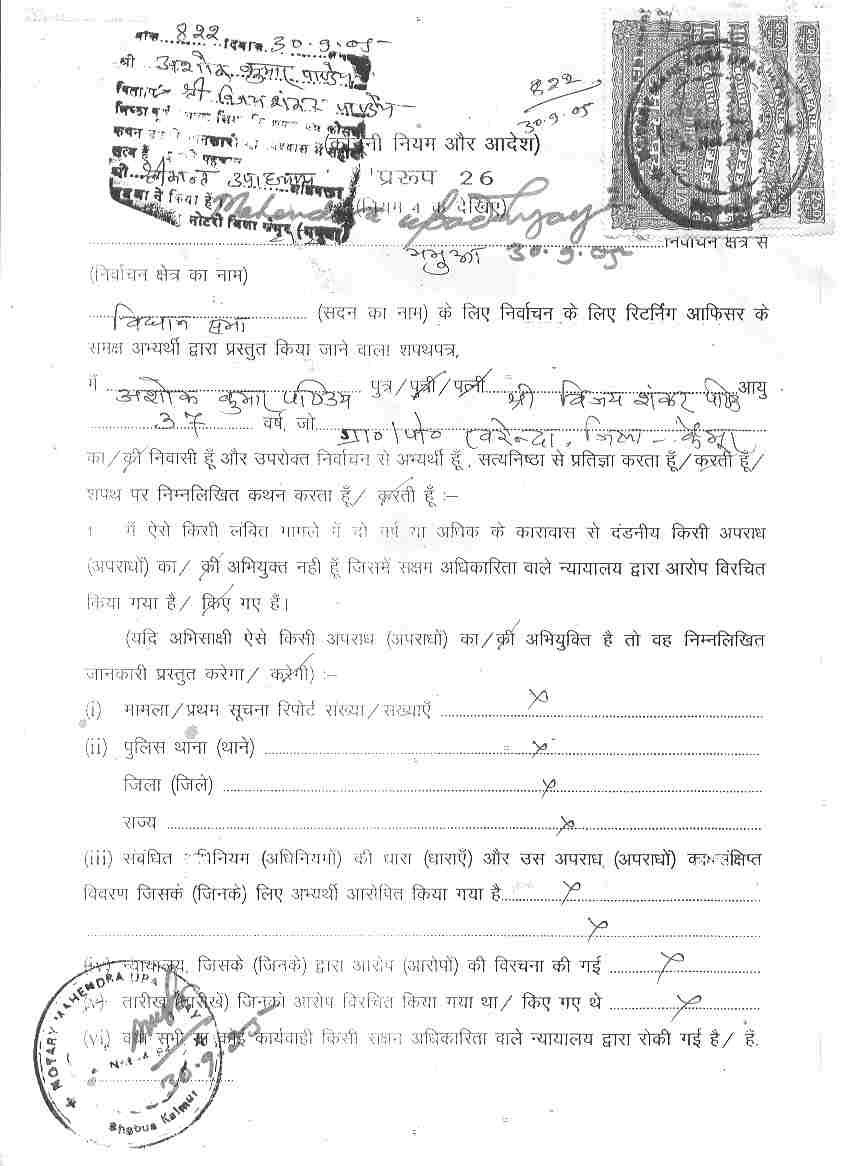 822 दिवस 30.9.05
श्री अशोक कुमार पाण्डेय
श्री विजय शंकर पाण्डेय
822
30.9.05
नियम और आदेश)
प्ररूप 26
(नियम देखिए)
Mahendra Upadhyay
नोटरी
30.9.05
भभुआ
निर्वाचन क्षेत्र से
(निर्वाचन क्षेत्र का नाम)
विधान सभा (सदन का नाम) के लिए निर्वाचन के लिए रिटर्निंग आफिसर के
समक्ष अभ्यर्थी द्वारा प्रस्तुत किया जाने वाला शपथपत्र,
मैं अशोक कुमार पाण्डेय पुत्र/पुत्री/पत्नी श्री विजय शंकर पाण्डेय आयु
37 वर्ष, जो ग्रा०/पो० जिला - कैमूर
का/की निवासी हूँ और उपरोक्त निर्वाचन से अभ्यर्थी हूँ, सत्यनिष्ठा से प्रतिज्ञा करता हूँ/करती हूँ/
शपथ पर निम्नलिखित कथन करता हूँ/ करती हूँ :–
1 मैं ऐसे किसी लंबित मामले में दो वर्ष या अधिक के कारावास से दंडनीय किसी अपराध
(अपराधों) का/ की अभियुक्त नही हूँ जिसमें सक्षम अधिकारिता वाले न्यायालय द्वारा आरोप विरचित
किया गया है/ किए गए हैं।
(यदि अभिसाक्षी ऐसे किसी अपराध (अपराधों) का/की अभियुक्ति है तो वह निम्नलिखित
जानकारी प्रस्तुत करेगा/ करेगी) :–
(i) मामला/प्रथम सूचना रिपोर्ट संख्या/सख्याएँ x
(ii) पुलिस थाना (थाने) x
जिला (जिले) x
राज्य x
(iii) संबंधित (अधिनियमों) की धारा (धाराएँ) और उस अपराध (अपराधों) का संक्षिप्त
विवरण जिसके (जिनके) लिए अभ्यर्थी आरोपित किया गया है x
x
न्यायालय, जिसके (जिनके) द्वारा आरोप (आरोपों) की विरचना की गई x
तारीख (तारीखें) जिनको आरोप विरचित किया गया था/ किए गए थे x
(vi) क्या सभी या कोई कार्यवाही किसी सक्षन अधिकारिता वाले न्यायालय द्वारा रोकी गई है/ हैं.
NOTARY MAHENDRA UPADHYAY
30.9.05
Bhabua Kaimur